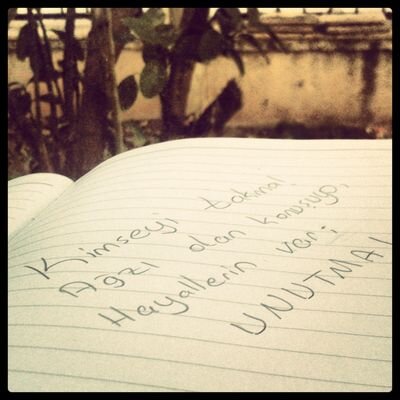 Kimseyi takma!
Ağzı olan konuşuyo,
Hayallerin var;
UNUTMA!